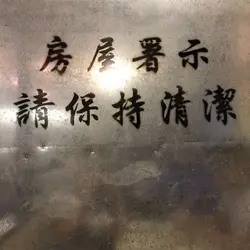 房屋署示
請保持清潔